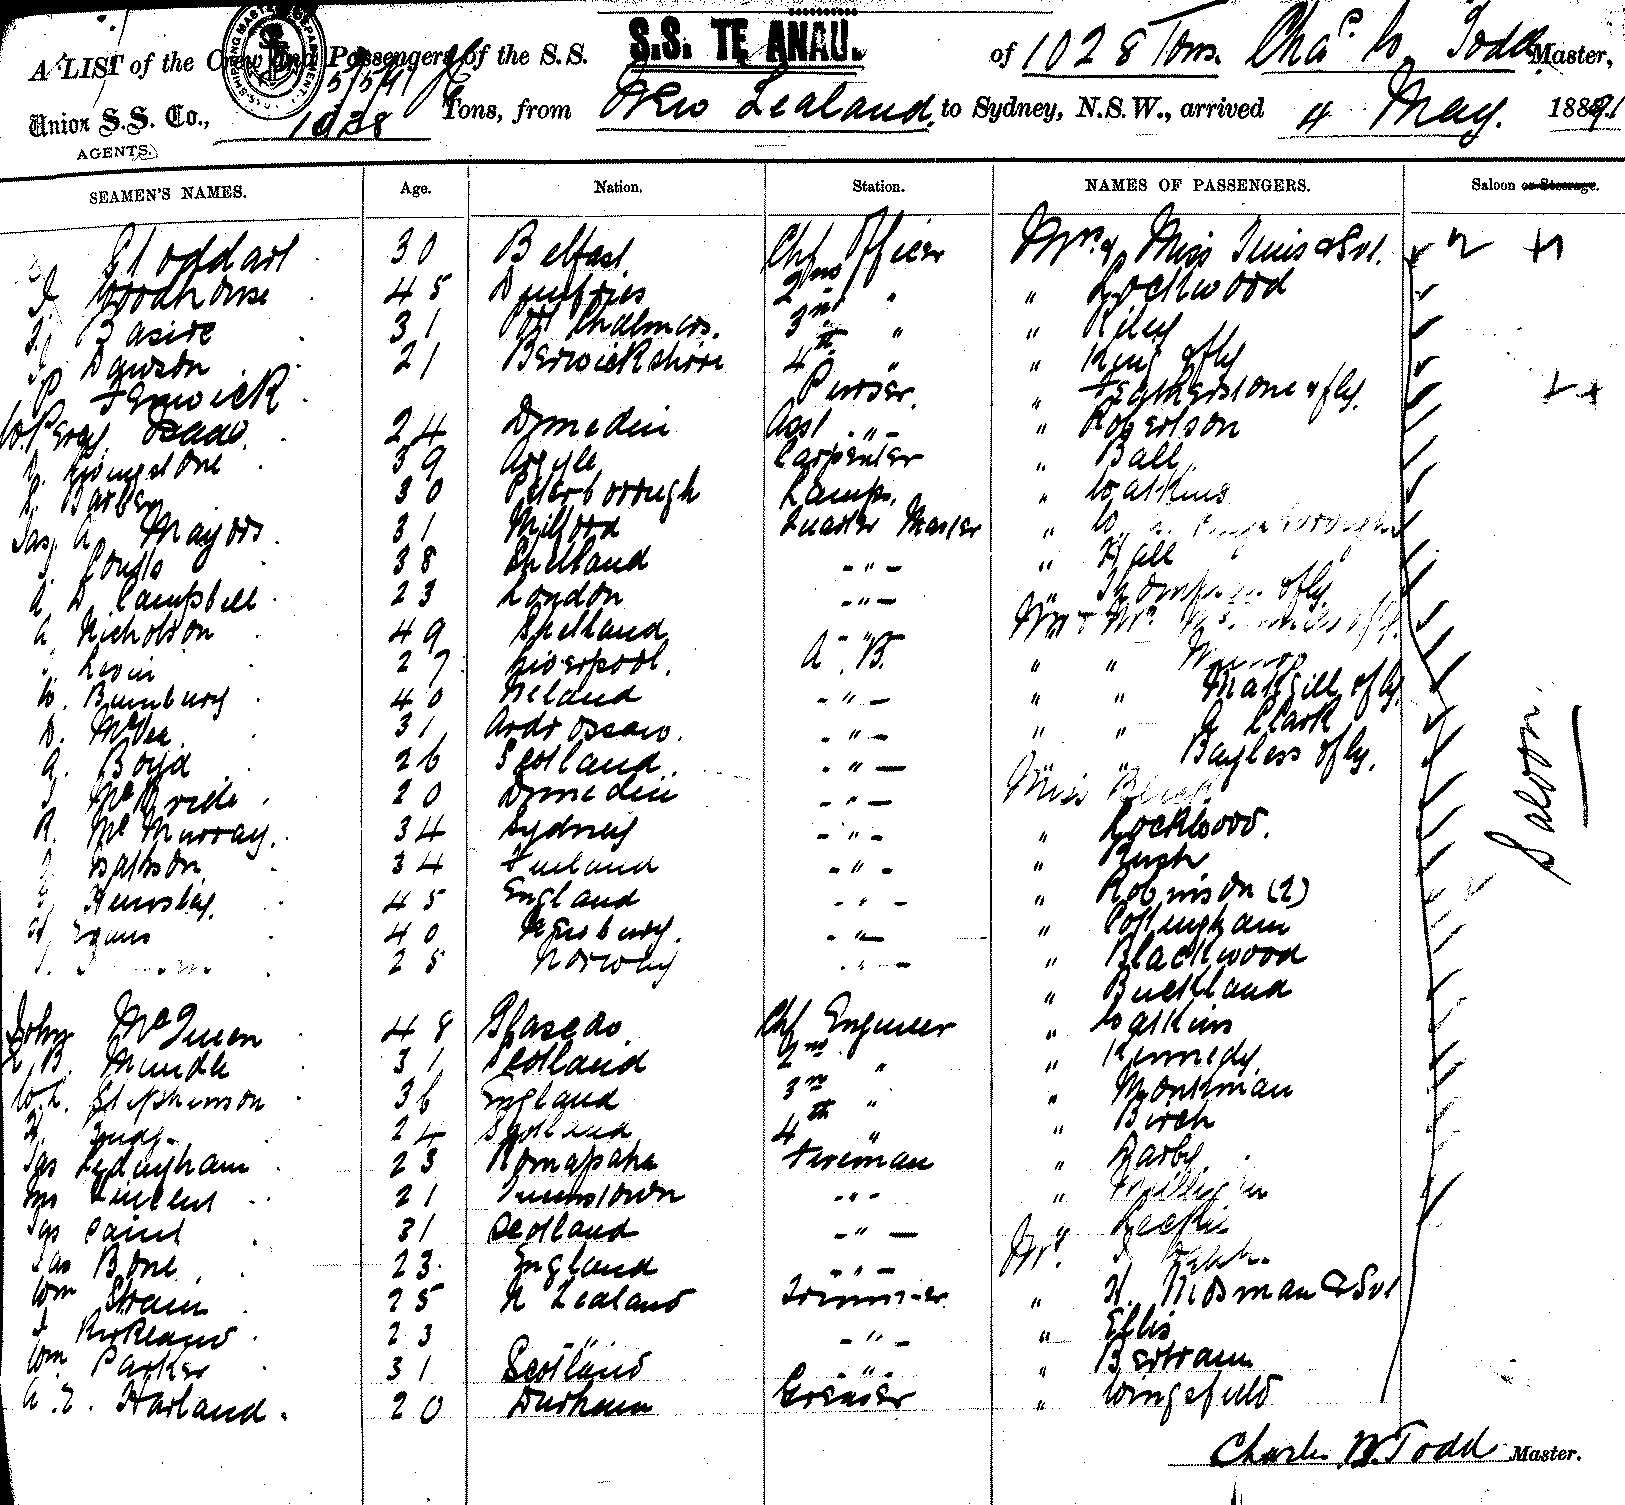 A LIST of the Crew and Passengers of the S.S. S.S. TE ANAU. of 1028 Tons. Chas. Todd Master,
5/5/91
Union S.S. Co., 1028 Tons, from New Zealand, to Sydney, N.S.W., arrived 4 May. 1891
AGENTS.
SEAMEN'S NAMES. Age. Nation. Station. NAMES OF PASSENGERS. Saloon or Steerage.
Stoddart 30 Belfast Chf Officer Miss & Svt.
Woodhouse 45 Dumfries 2nd " " Lockwood
Basire 31 Port Chalmers. 3rd " " Riley
Dawson 21 Berwickshire 4th " " King & fly
P Fenwick Purser. " Featherstone & fly.
W. Percy Isaac. 24 Dunedin Asst -"- " Robertson
Livingstone 39 Argyle Carpenter " Ball
Barber 30 Peterborough Lamps. " Watkins
Jas. A. Mayors 31 Milford Quarter Master "
Coutts 38 Shetland -"- " Hall
A D Campbell 23 London -"- " & fly
A. Nicholson 49 Shetland -"-
Levin 27 Liverpool. A.B. " "
W. Bunbury 40 Ireland -"- " " & fly
D. McVea 31 Ardrossan. -"- " " Clark
A. Boyd 26 Scotland -"- " " Bayless & fly.
McBride 20 Dunedin -"- Miss
R. McMurray. 34 Sydney -"- " Lockwood.
34 Finland -"- " Rush
Hemsley. 45 England -"- " Robinson (2)
Evans 40 Newbury. -"- " Cottingham
25 Norway -"- " Blackwood
" Buckland
John McQueen 48 Glasgow Chf Engineer " Watkins
B. Mundle 31 Scotland 2nd " " Kennedy
W.L. Stephenson 36 England 3rd " " Monkman
24 Scotland 4th " " Birch
Jas Ledingham 23 Fireman " Darby
Vincent 21 Queenstown -"- "
Jas Saint 31 Scotland -"- " Leckie
Jas Bone 23 England -"- Mr.
Wm Strain 25 N Zealand Trimmer " H. Mosman & Svt
Kirkland 23 " -"- " Ellis
Wm Parker 31 Scotland -"- " Bertram
A. E. Harland. 20 Durham Greaser " Wingfield
Saloon.
Charles W. Todd Master.